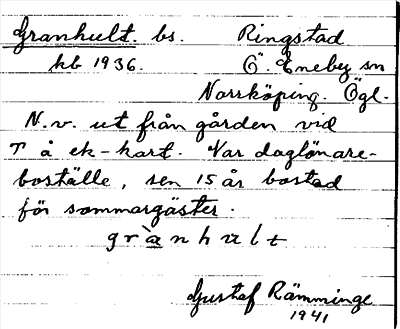 Granhult. bs. Ringstad
hb 1936. Ö. Eneby sn
Norrköping. Ögl.
N.v. ut från gården vid
T å ek-kart. Var daglönare-
boställe, sen 15 år bostad
för sommargäster.
grànhult
Gustaf Rämminge
1941